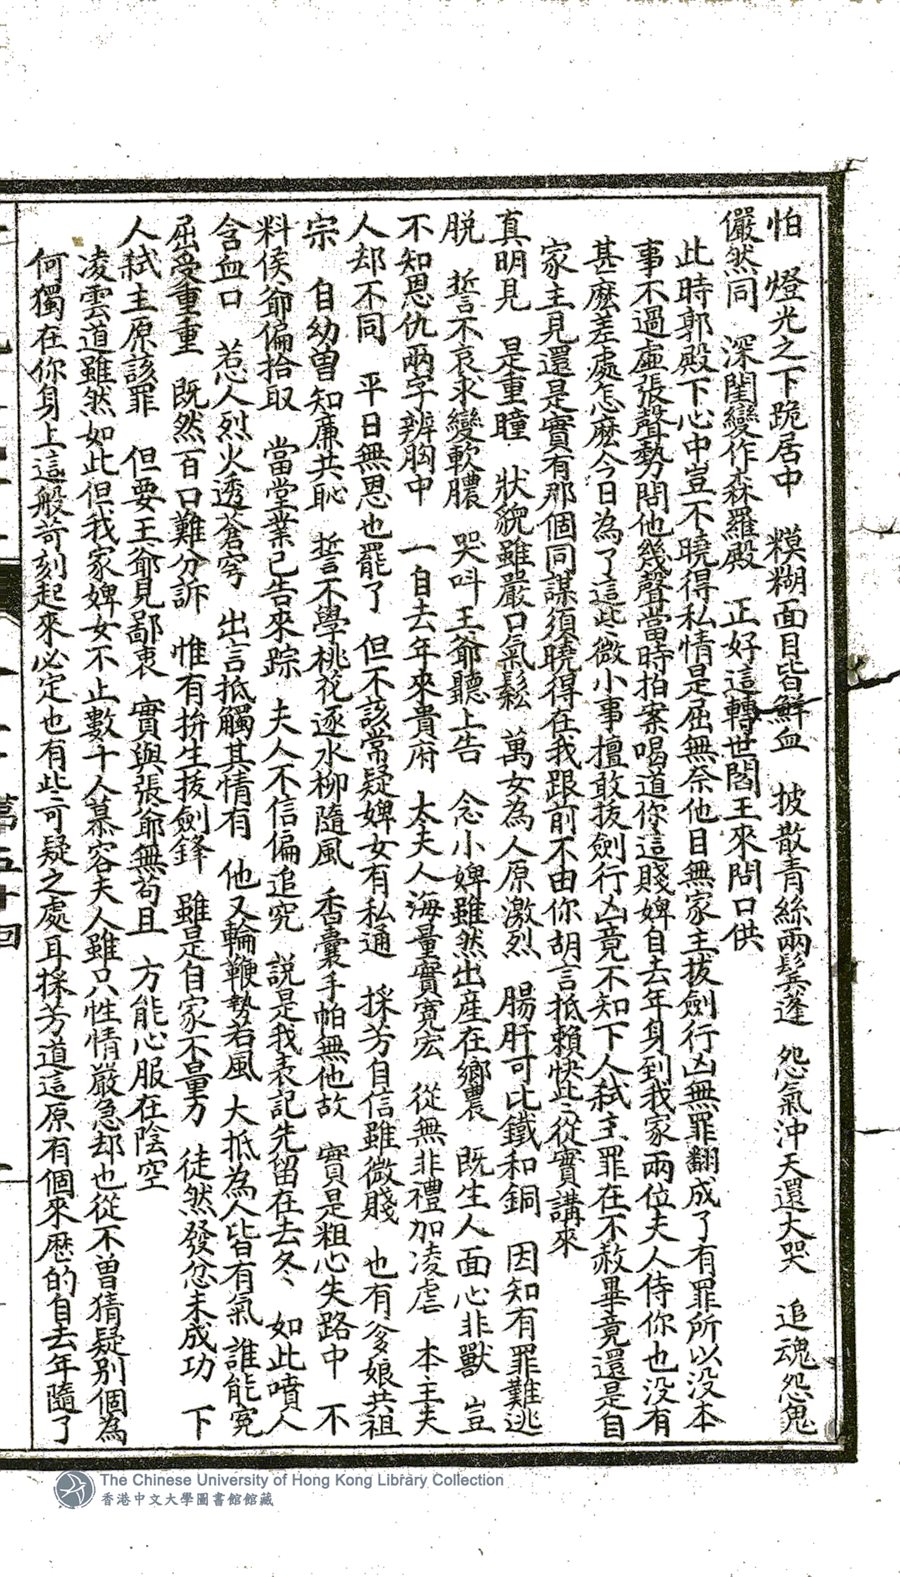 怕　燈光之下跪居中　糢糊面目皆鮮血　披散青絲兩鬓蓬　怨氣沖天還大哭　追魂怨鬼
儼然同　深閨變作森羅殿　正好這轉世閻王來問口供
此時郭殿下心中豈不曉得私情是屈無奈他目無家主拔劍行凶無罪翻成了有罪所以没本
事不過虛張聲勢問他幾聲當時拍案喝道你這賤婢自去年身到我家兩位夫人待你也没有
甚麽差處怎麽今日為了這些微小事擅敢拔劍行凶竟不知下人弑主罪在不赦畢竟還是自
家主見還是實有那個同謀須曉得在我跟前不由你胡言抵賴快些從實講來
真明見　是重瞳　狀貌雖嚴口氣鬆　萬女為人原激烈　腸肝可比鐵和銅　因知有罪難逃
脱　誓不哀求變軟膿　哭呌王爺聽上告　念小婢雖然出産在鄉農　既生人面心非獸　豈
不知恩仇兩字辨胸中　一自去年來貴府　太夫人海量實寬宏　從無非禮加凌虐　本主夫
人却不同　平日無恩也罷了　但不該常疑婢女有私通　採芳自信雖微賤　也有爹娘共祖
宗　自幼曽知廉共恥　誓不學桃花逐水柳隨風　香囊手帕無他故　實是粗心失路中　不
料侯爺偏拾取　當堂業已告來踪　夫人不信偏追究　説是我表記先留在去冬　如此噴人
含血口　惹人烈火透蒼穹　出言抵觸其情有　他又輪鞭勢若風　大抵為人皆有氣　誰能寃
屈受重重　既然百口難分訴　惟有拚生拔劍鋒　雖是自家不量力　徒然發忿未成功　下
人弑主原該罪　但要王爺見鄙衷　實與張爺無苟且　方能心服在陰空
凌雲道雖然如此但我家婢女不止數十人慕容夫人雖只性情嚴急却也從不曽猜疑别個為
何獨在你身上這般苛刻起來必定也有些可疑之處耳採芳道這原有個來歴的自去年隨了
第五十回
The Chinese University of Hong Kong Library Collection
香港中文大學圖書館館藏